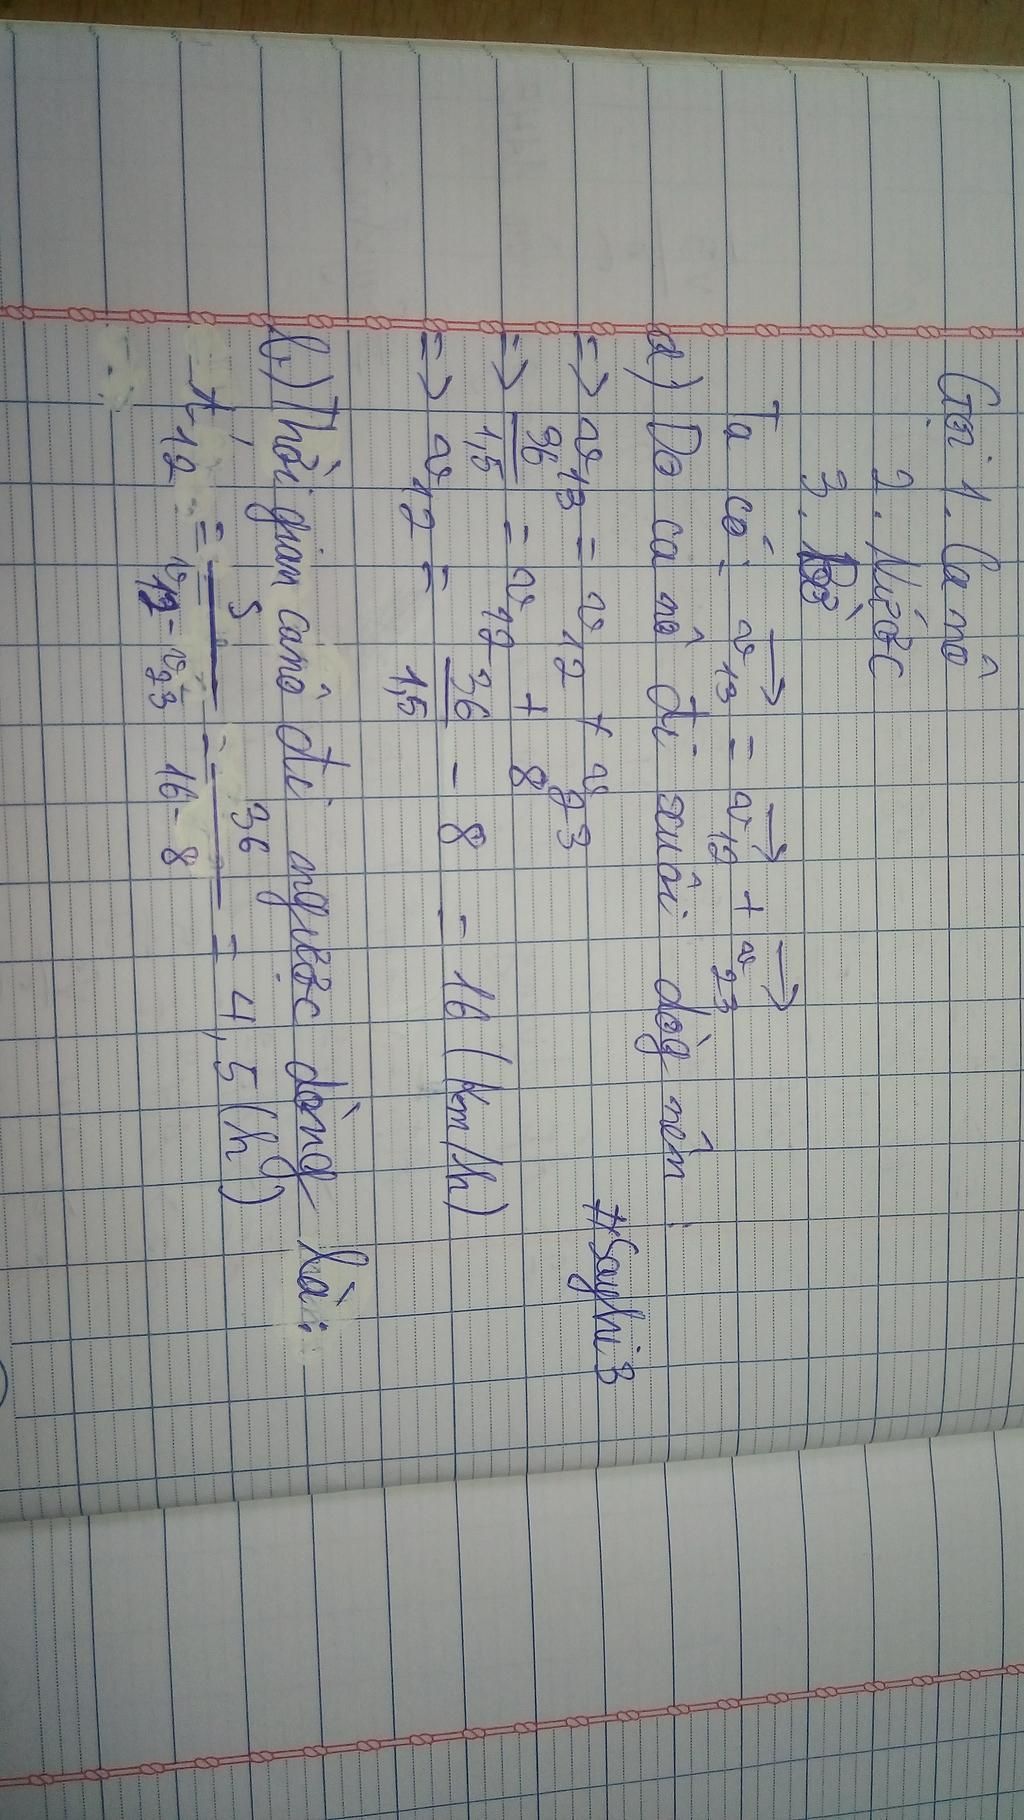 Gọi 1. Ca nô
2. Nước
3. Bờ
Ta có: v₁₃ = v₁₂ + v₂₃
a) Do ca nô đi xuôi dòg nên:
=> v₁₃ = v₁₂ + v₂₃
=> 36/1,5 = v₁₂ + 8
=> v₁₂ = 36/1,5 - 8 = 16 (km/h)
#Sayhi3
b) Thời gian canô đi ngược dòng là:
t'₁₂ = S/(v₁₂ - v₂₃) = 36/(16 - 8) = 4,5 (h)